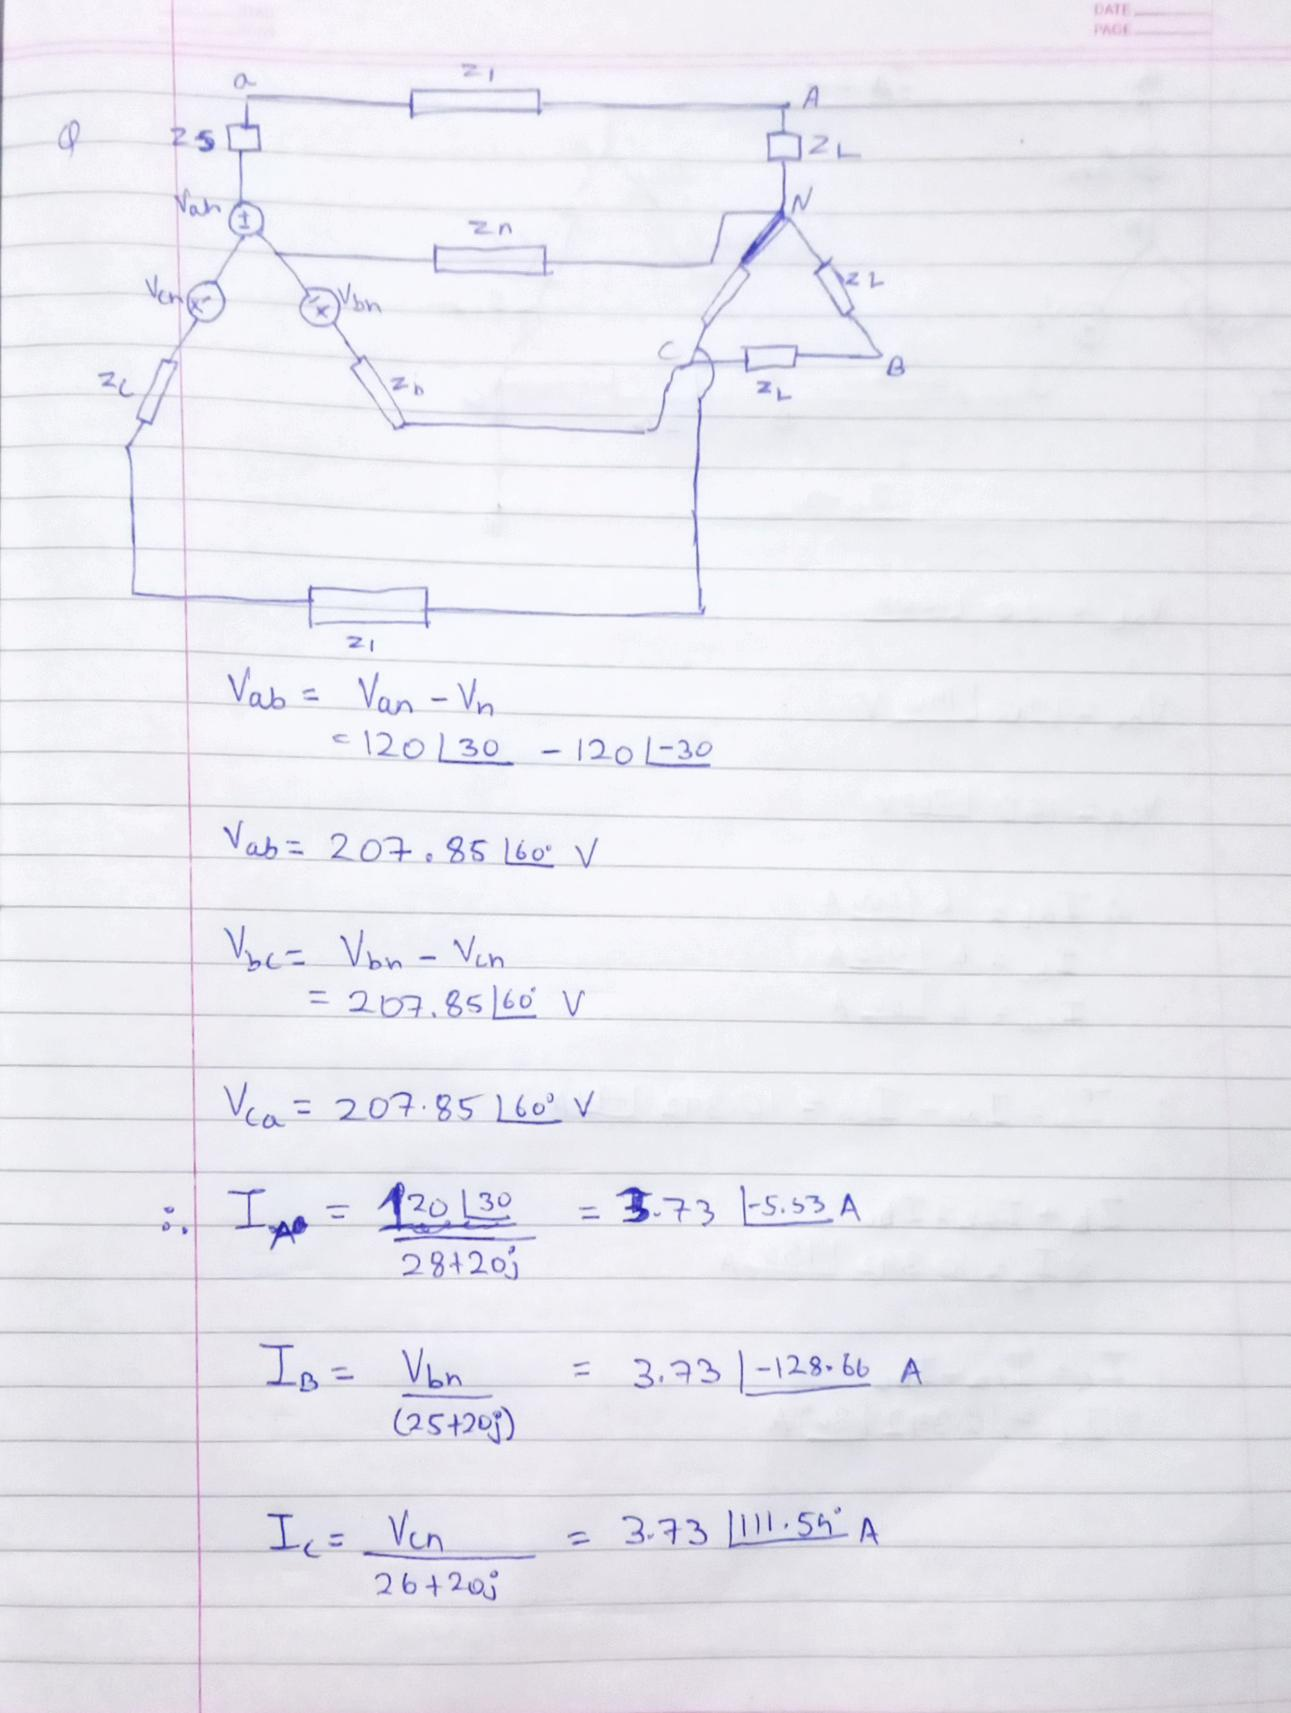 DATE
PAGE
Q
a
Z1
A
Zs
ZL
Van
N
Zn
Vcn
Vbn
ZL
Zc
Zb
C
B
ZL
Z1
Vab = Van - Vn
= 120 ∠30 - 120 ∠-30
Vab = 207.85 ∠60° V
Vbc = Vbn - Vcn
= 207.85 ∠60° V
Vca = 207.85 ∠60° V
∴ IA = 120 ∠30 / 28+20j = 3.73 ∠-5.53 A
IB = Vbn / (25+20j) = 3.73 ∠-128.66 A
Ic = Vcn / 26+20j = 3.73 ∠111.54° A